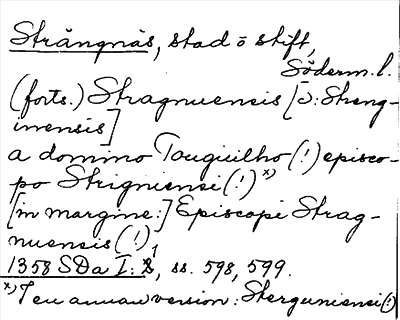 Strängnäs, stad o stift,
Söderm. l.
(forts.) Stragnuensis [ɔ: Streng-
inensis]
a domino Touguilho (!) episco-
po Strigniensi (!) x)
[in margine:] Episcopi Strag-
nuensis (!)
1358 SDa I: 1, ss. 598, 599.
x) I en annan version: Sterguniensi (!)